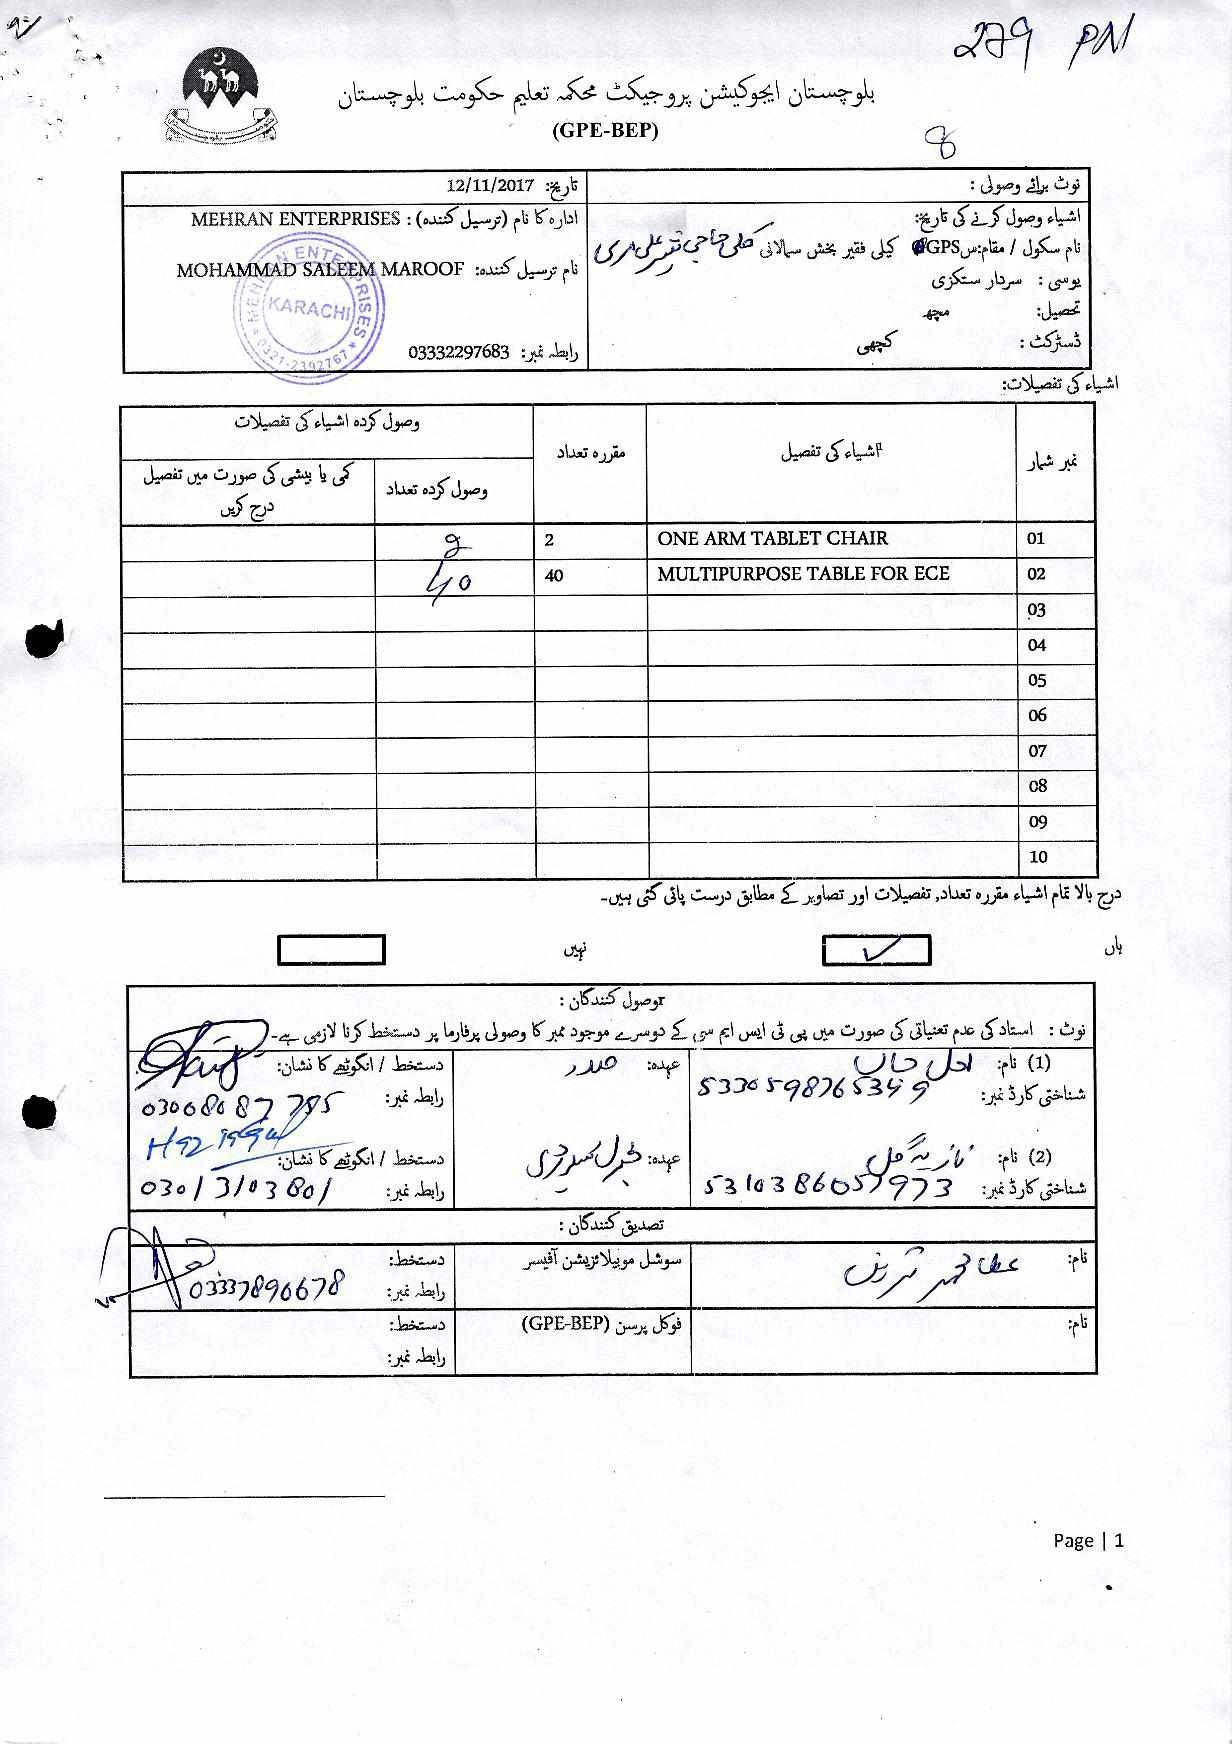 279 PN
بلوچستان ایجوکیشن پروجیکٹ محکمہ تعلیم حکومت بلوچستان
(GPE-BEP)
8
نوٹ برائے وصولی :
تاریخ: 12/11/2017
اشیاء وصول کرنے کی تاریخ:
ادارہ کا نام (ترسیل کنندہ) : MEHRAN ENTERPRISES
نام سکول / مقام:س GPS کیلی فقیر بخش سمالانی کلی حاجی شیر علی مری
نام ترسیل کنندہ: MOHAMMAD SALEEM MAROOF
یوسی : سردار ستکزی
تحصیل: مچھ
ڈسٹرکٹ : کچھی
رابطہ نمبر: 03332297683
MEHRAN ENTERPRISES
KARACHI
0321-2392767
اشیاء کی تفصیلات:
نمبر شمار
اشیاء کی تفصیل
مقررہ تعداد
وصول کردہ اشیاء کی تفصیلات
وصول کردہ تعداد
کمی یا بیشی کی صورت میں تفصیل درج کریں
01 ONE ARM TABLET CHAIR 2 2
02 MULTIPURPOSE TABLE FOR ECE 40 40
03
04
05
06
07
08
09
10
درج بالا تمام اشیاء مقررہ تعداد, تفصیلات اور تصاویر کے مطابق درست پائی گئی ہیں۔
ہاں ✓ نہیں
وصول کنندگان :
نوٹ : استاد کی عدم تعنیاتی کی صورت میں پی ٹی ایس ایم سی کے دوسرے موجود ممبر کا وصولی پرفارما پر دستخط کرنا لازمی ہے۔
(1) نام: لعل خان عہدہ: صدر دستخط / انگوٹھے کا نشان:
شناختی کارڈ نمبر: 5330598765349 رابطہ نمبر: 03068087785
(2) نام: نازیہ گل عہدہ: جنرل سیکرٹری دستخط / انگوٹھے کا نشان:
شناختی کارڈ نمبر: 5310386057973 رابطہ نمبر: 03013103801
تصدیق کنندگان :
نام: عطا محمد ترین سوشل موبیلائزیشن آفیسر دستخط:
رابطہ نمبر: 03337896678
نام: فوکل پرسن (GPE-BEP) دستخط:
رابطہ نمبر:
Page | 1